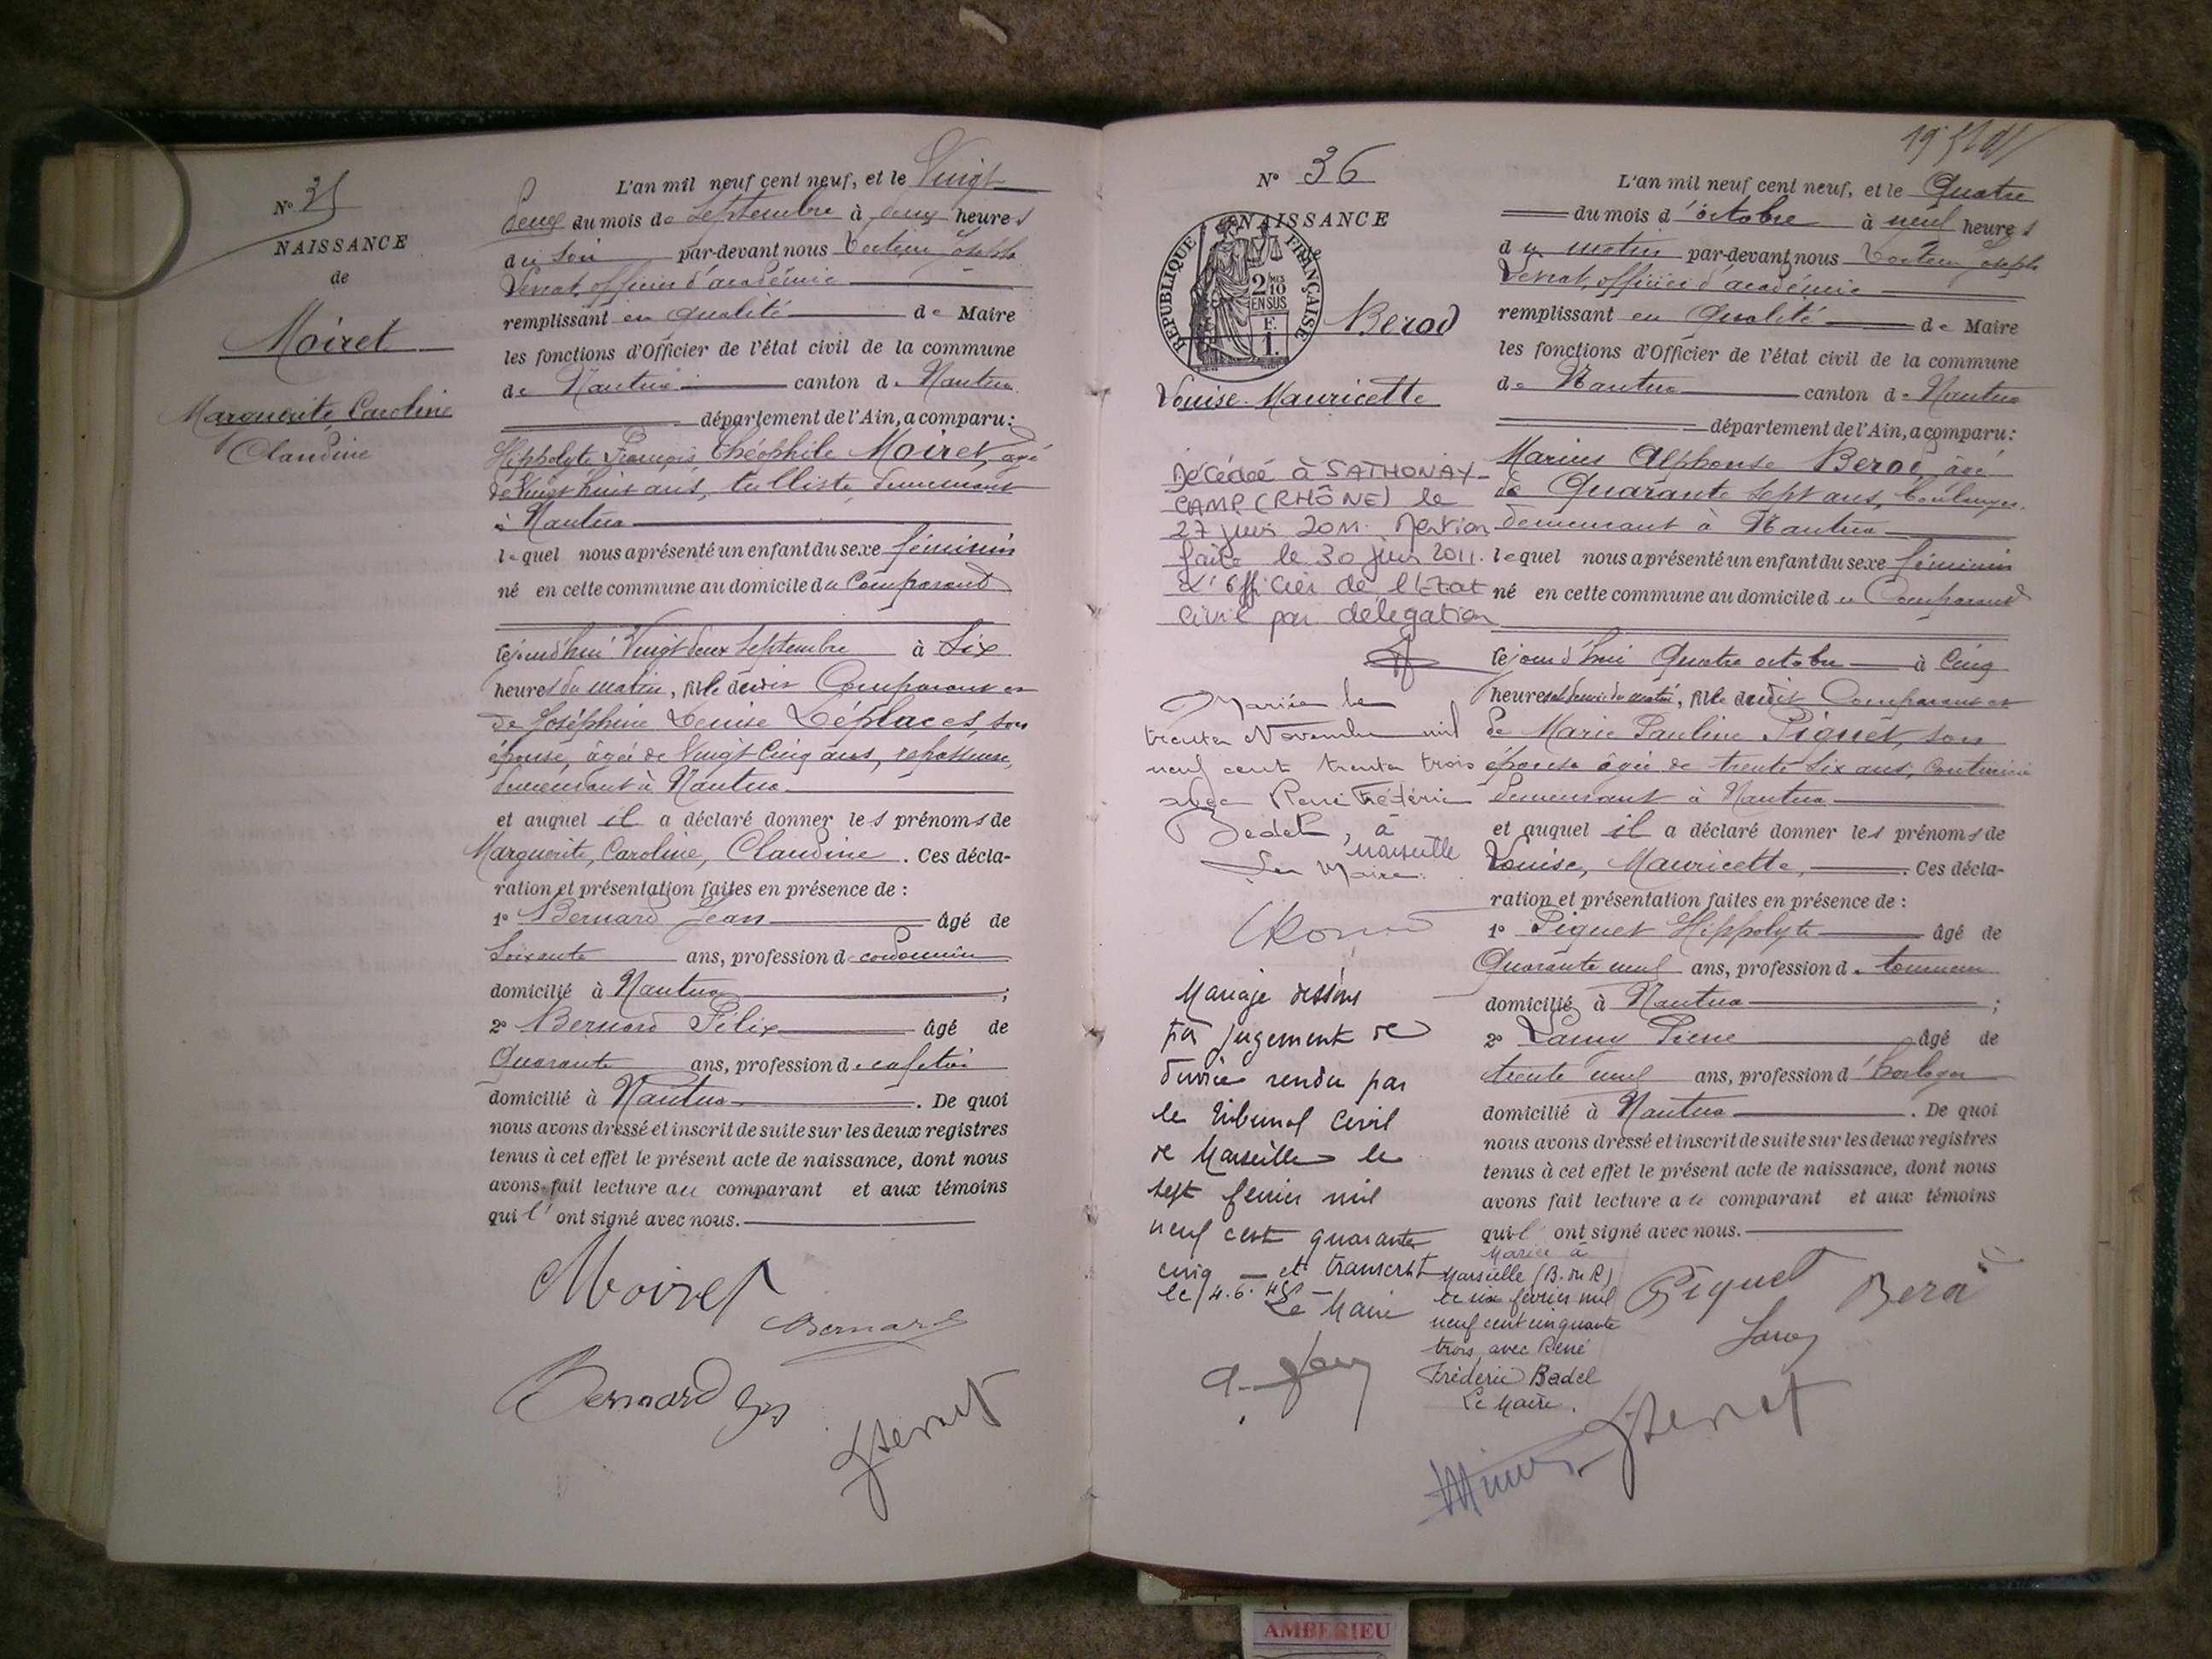 N° 35
NAISSANCE
de
Moiret
Marguerite, Caroline
Claudine
L'an mil neuf cent neuf, et le Vingt
deux du mois de Septembre à deux heures
du soir par-devant nous Joseph
Officier d'académie
remplissant en qualité de Maire
les fonctions d'Officier de l'état civil de la commune
de Nantua canton de Nantua
département de l'Ain, a comparu:
Hippolyte François Théophile Moiret, âgé
de Vingt huit ans, tulliste, demeurant
à Nantua
lequel nous a présenté un enfant du sexe féminin
né en cette commune au domicile du Comparant
cejourd'hui Vingt deux Septembre à Six
heures du matin, fille dudit Comparant et
de Joséphine Louise Déplaces, son
épouse, âgée de Vingt Cinq ans, repasseuse,
demeurant à Nantua
et auquel il a déclaré donner les prénoms de
Marguerite, Caroline, Claudine. Ces décla-
ration et présentation faites en présence de :
1° Bernard Jean âgé de
Soixante ans, profession de cordonnier
domicilié à Nantua ;
2° Bernard Félix âgé de
Quarante ans, profession de cafetier
domicilié à Nantua . De quoi
nous avons dressé et inscrit de suite sur les deux registres
tenus à cet effet le présent acte de naissance, dont nous
avons fait lecture au comparant et aux témoins
qui l'ont signé avec nous.
Moiret
Bernard
Bernard
N° 36
NAISSANCE
RÉPUBLIQUE FRANÇAISE
2/10 EN SUS
F.
1.
Berod
Louise Mauricette
Décédée à SATHONAY-
CAMP (RHÔNE) le
27 juin 2011. Mention
faite le 30 juin 2011.
L'officier de l'Etat
Civil par délégation
Mariée le
trente Novembre mil
neuf cent trente trois
avec René Frédéric
Badel, à
Marseille
Le Maire.
Mariage dissous
par jugement de
divorce rendu par
le Tribunal Civil
de Marseille le
sept février mil
neuf cent quarante
cinq et transcrit
le 14.6.45
Le Maire
L'an mil neuf cent neuf, et le Quatre
du mois d'octobre à neuf heures
du matin par-devant nous Joseph
officier d'académie
remplissant en qualité de Maire
les fonctions d'Officier de l'état civil de la commune
de Nantua canton de Nantua
département de l'Ain, a comparu:
Marius Alphonse Berod, âgé
de Quarante sept ans, boulanger,
demeurant à Nantua
lequel nous a présenté un enfant du sexe féminin
né en cette commune au domicile du Comparant
cejourd'hui Quatre octobre à Cinq
heures et demie du matin, fille dudit Comparant et
de Marie Pauline Piquet, son
épouse âgée de trente six ans, couturière
demeurant à Nantua
et auquel il a déclaré donner les prénoms de
Louise, Mauricette, . Ces décla-
ration et présentation faites en présence de :
1° Piquet Hippolyte âgé de
Quarante neuf ans, profession de tourneur
domicilié à Nantua ;
2° Lamy Pierre âgé de
trente neuf ans, profession d'horloger
domicilié à Nantua . De quoi
nous avons dressé et inscrit de suite sur les deux registres
tenus à cet effet le présent acte de naissance, dont nous
avons fait lecture au comparant et aux témoins
qui l'ont signé avec nous.
Mariée à
Marseille (B. du R)
le six février mil
neuf cent cinquante
trois, avec René
Fréderic Badel
Le Maire.
Piquet
Berod
Lamy
AMBERIEU